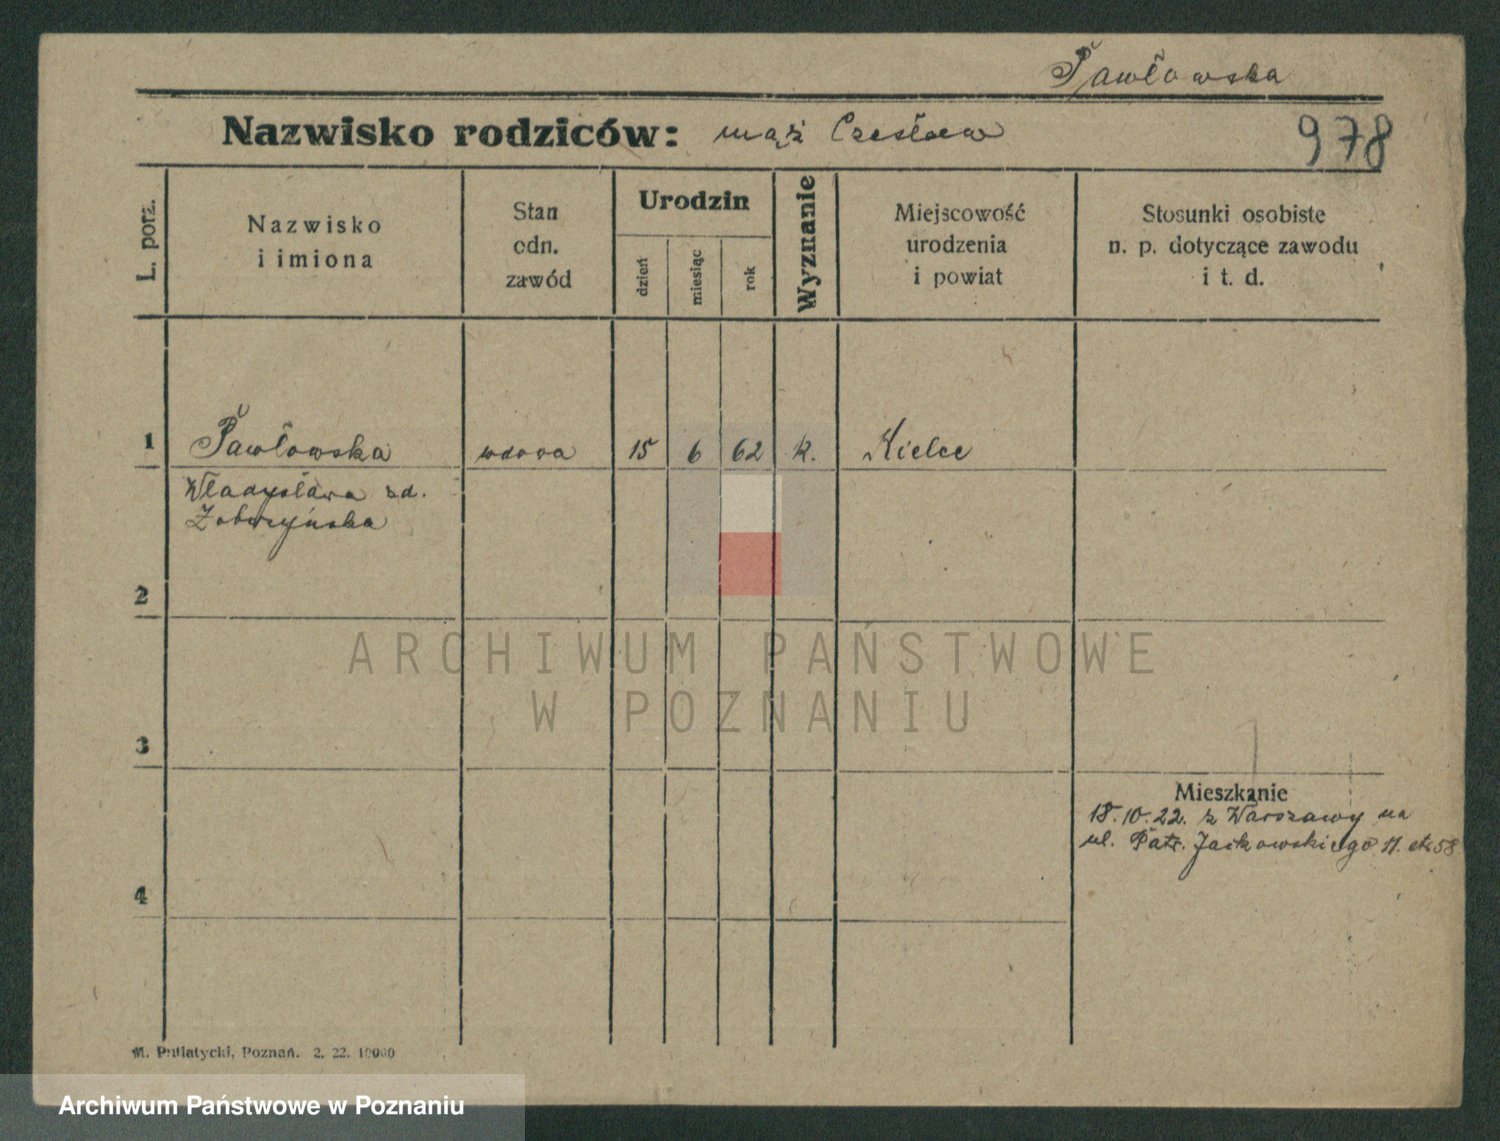 Pawłowska
Nazwisko rodziców: mąż Czesław
978
L. porz.
Nazwisko
i imiona
Stan
odn.
zawód
Urodzin
dzień
miesiąc
rok
Wyznanie
Miejscowość
urodzenia
i powiat
Stosunki osobiste
n. p. dotyczące zawodu
i t. d.
1 Pawłowska wdowa 15 6 62 k. Kielce
Władysława zd.
2
ARCHIWUM PAŃSTWOWE
W POZNANIU
3
Mieszkanie
18.10.22. z Warszawy na
ul. Patr. Jackowskiego 11. str 58
4
M. Putiatycki, Poznań. 2. 22. 10000
Archiwum Państwowe w Poznaniu